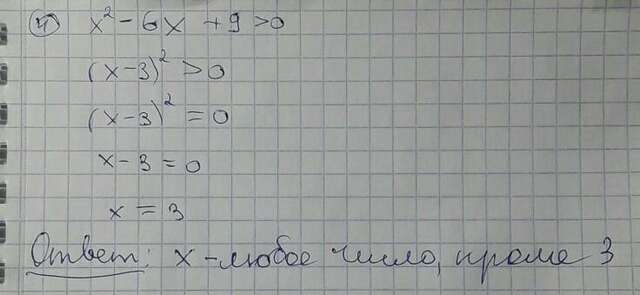 4) x² - 6x + 9 > 0
(x-3)² > 0
(x-3)² = 0
x - 3 = 0
x = 3
Ответ: x - любое число, кроме 3